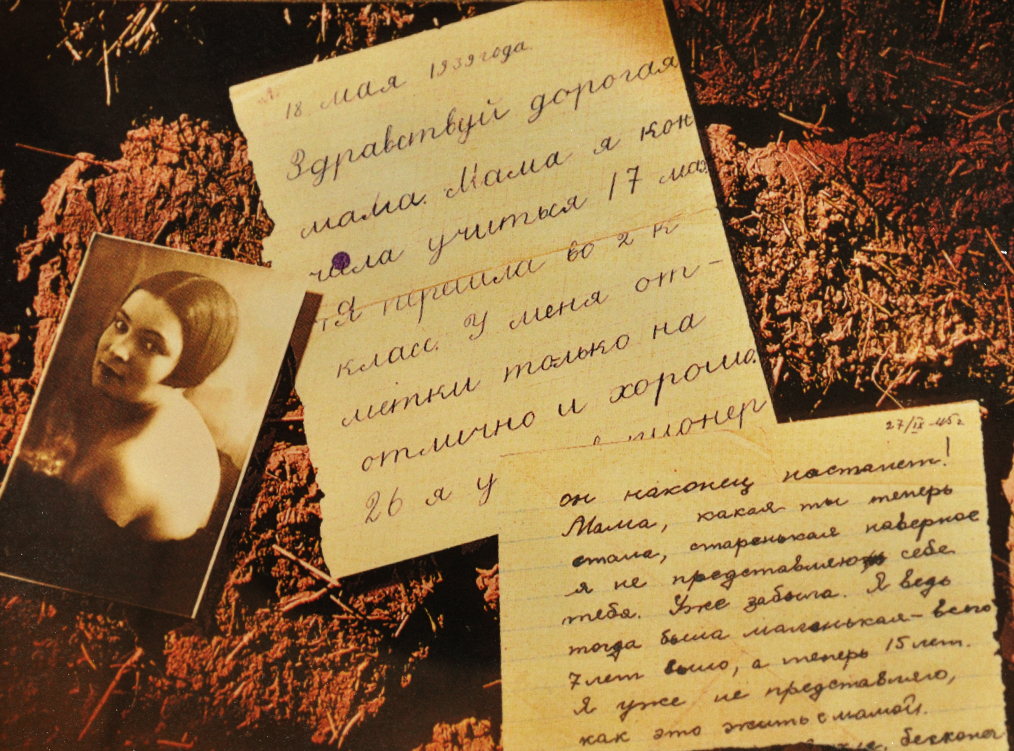 18 мая 1939 года.
Здравствуй дорогая
мама. Мама я кон
чила учиться 17 мая
Я перешла во 2 й
класс. У меня от-
метки только на
отлично и хорошо.
26 я у пионер
27/IX-45 г.
он наконец настанет!
Мама, какая ты теперь
стала, старенькая наверное
я не представляю себе
тебя. Уже забыла. Я ведь
тогда была маленькая - всего
7 лет было, а теперь 15 лет.
Я уже не представляю,
как это жить с мамой.
бесконеч